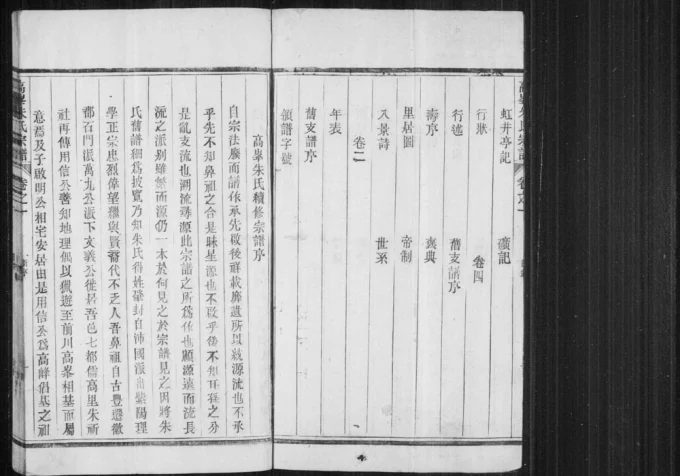 虹井亭記
壙記
行狀
卷四
行述
舊支譜序
壽序
褒典
里居圖
帝制
八景詩
世系
卷二
年表
舊支譜序
領譜字號
高峯朱氏宗譜
卷之一
高峯朱氏續修宗譜序
自宗法廢而譜作承先啟後詳載靡遺所以紋源流也不承
乎先不知鼻祖之合是昧星源也不啟乎後不知耳孫之分
是亂支流也溯流尋源此宗譜之所為作也顧源遠而流長
流之派别雖繁而源仍一本於何見之於宗譜見之因將朱
氏舊譜細為披覽乃知朱氏得姓肇封自沛國派出紫陽理
學正宗忠烈偉望纓與賢裔代不乏人吾鼻祖自古豊遷徽
郡石門派萬九公派下文義公徙居吾邑七都儒高里朱祈
社再傳用信公善知地理偶以獵遊至前川高峯相基而屬
意焉及子啟明公相宅安居由是用信公為高峰倡基之祖
高峯朱氏宗譜
卷之一